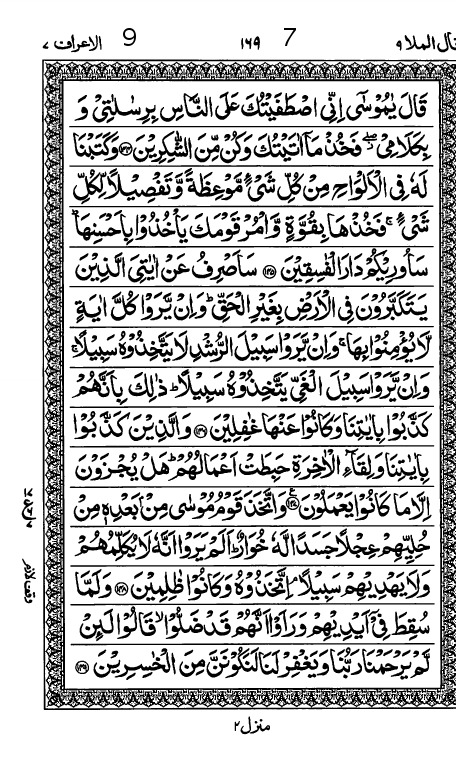 قال الملا ٩ 7 ١٦٩ 9 الاعراف ٧
قَالَ يٰمُوْسٰٓى اِنِّى اصْطَفَيْتُكَ عَلَى النَّاسِ بِرِسٰلٰتِىْ وَ
بِكَلَامِىْ ۖ فَخُذْ مَاۤ اٰتَيْتُكَ وَكُنْ مِّنَ الشّٰكِرِيْنَ ﴿۱۴۴﴾ وَكَتَبْنَا
لَهٗ فِى الْاَلْوَاحِ مِنْ كُلِّ شَىْءٍ مَّوْعِظَةً وَّتَفْصِيْلًا لِّكُلِّ
شَىْءٍ ۚ فَخُذْهَا بِقُوَّةٍ وَّاْمُرْ قَوْمَكَ يَاْخُذُوْا بِاَحْسَنِهَا ؕ
سَاُورِيْكُمْ دَارَ الْفٰسِقِيْنَ ﴿۱۴۵﴾ سَاَصْرِفُ عَنْ اٰيٰتِىَ الَّذِيْنَ
يَتَكَبَّرُوْنَ فِى الْاَرْضِ بِغَيْرِ الْحَقِّ ؕ وَاِنْ يَّرَوْا كُلَّ اٰيَةٍ
لَّا يُؤْمِنُوْا بِهَا ۚ وَاِنْ يَّرَوْا سَبِيْلَ الرُّشْدِ لَا يَتَّخِذُوْهُ سَبِيْلًا ۚ
وَاِنْ يَّرَوْا سَبِيْلَ الْغَىِّ يَتَّخِذُوْهُ سَبِيْلًا ؕ ذٰلِكَ بِاَنَّهُمْ
كَذَّبُوْا بِاٰيٰتِنَا وَكَانُوْا عَنْهَا غٰفِلِيْنَ ﴿۱۴۶﴾ وَالَّذِيْنَ كَذَّبُوْا
بِاٰيٰتِنَا وَلِقَآءِ الْاٰخِرَةِ حَبِطَتْ اَعْمَالُهُمْ ؕ هَلْ يُجْزَوْنَ
اِلَّا مَا كَانُوْا يَعْمَلُوْنَ ﴿۱۴۷﴾ وَاتَّخَذَ قَوْمُ مُوْسٰى مِنْۢ بَعْدِهٖ مِنْ
حُلِيِّهِمْ عِجْلًا جَسَدًا لَّهٗ خُوَارٌ ؕ اَلَمْ يَرَوْا اَنَّهٗ لَا يُكَلِّمُهُمْ
وَلَا يَهْدِيْهِمْ سَبِيْلًا ۘ اِتَّخَذُوْهُ وَكَانُوْا ظٰلِمِيْنَ ﴿۱۴۸﴾ وَلَمَّا
سُقِطَ فِىْۤ اَيْدِيْهِمْ وَرَاَوْا اَنَّهُمْ قَدْ ضَلُّوْا ۙ قَالُوْا لَئِنْ
لَّمْ يَرْحَمْنَا رَبُّنَا وَيَغْفِرْ لَنَا لَنَكُوْنَنَّ مِنَ الْخٰسِرِيْنَ ﴿۱۴۹﴾
منزل ٢